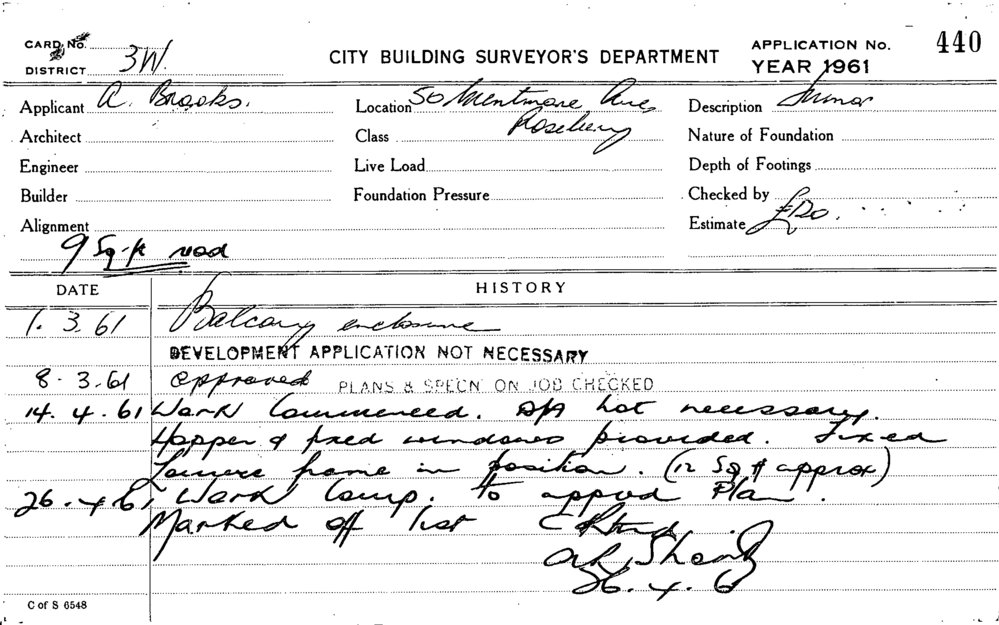 CARD No. 3W.
DISTRICT
CITY BUILDING SURVEYOR'S DEPARTMENT
APPLICATION No. 440
YEAR 1961
Applicant A. Brooks.
Location 50 Mentmore Ave,
Rosebery
Description Minor
Architect
Class
Nature of Foundation
Engineer
Live Load
Depth of Footings
Builder
Foundation Pressure
Checked by
Alignment
Estimate £120.
9 Sq. ft reqd
DATE HISTORY
1. 3. 61 Balcony enclosure
DEVELOPMENT APPLICATION NOT NECESSARY
8. 3. 61 approved PLANS & SPECN ON JOB CHECKED
14. 4. 61 Work Commenced. D/A not necessary.
Hopper & fixed windows provided. Fixed
Louvre frame in position. (12 Sq ft approx)
26. 4. 61 Work Comp. to approd Plan.
Marked off list
26. 4. 61
C of S 6548